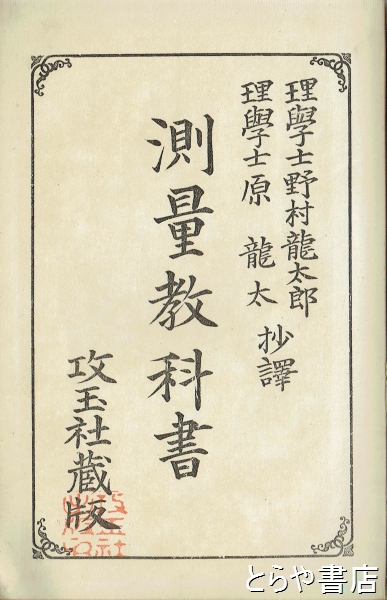 理學士野村龍太郎
理學士原龍太
抄譯
測量教科書
攻玉社蔵版
とらや書店